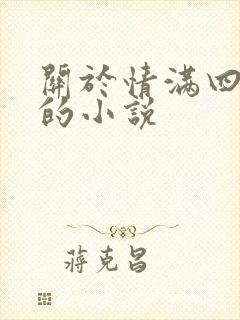 關於情滿四
的小說
蔣克昌